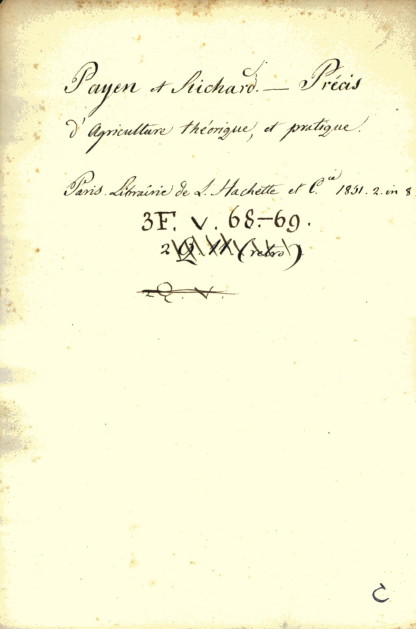 Payen et Richard. — Précis
d'Agriculture théorique, et pratique.
Paris. Librairie de L. Hachette et C.ie 1851. 2. in 8
3F. V. 68.-69.
2 Q. (retro)
2 Q. V.